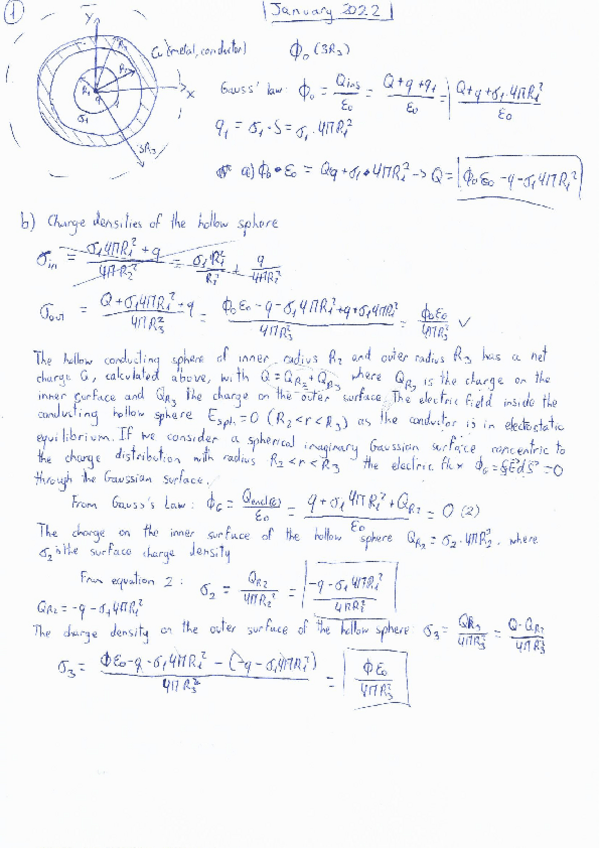 ① | January 2022 |
y
R3
Cu (metal, conductor)
R2
R1
q
x
σ1
3R3
Φ₀ (3R₃)
Gauss' law: Φ₀ = Qins/ε₀ = (Q+q+q₁)/ε₀ = (Q+q+σ₁·4πR₁²)/ε₀
q₁ = σ₁·S = σ₁·4πR₁²
a) Φ₀·ε₀ = Q+q+σ₁·4πR₁² -> Q = Φ₀ε₀-q-σ₁4πR₁²
b) Charge densities of the hollow sphere
σin = (σ₁4πR₁²+q)/(4πR₂²) = σ₁R₁²/R₂² + q/(4πR₂²)
σout = (Q+σ₁4πR₁²+q)/(4πR₃²) = (Φ₀ε₀-q-σ₁4πR₁²+q+σ₁4πR₁²)/(4πR₃²) = Φ₀ε₀/(4πR₃²) ✓
The hollow conducting sphere of inner radius R₂ and outer radius R₃ has a net
charge Q, calculated above, with Q=Q_R₂+Q_R₃ where Q_R₂ is the charge on the
inner surface and Q_R₃ the charge on the outer surface. The electric field inside the
conducting hollow sphere Esph.=0 (R₂<r<R₃) as the conductor is in electrostatic
equilibrium. If we consider a spherical imaginary Gaussian surface concentric to
the charge distribution with radius R₂<r<R₃ the electric flux Φ_G=∮E⃗dS⃗=0
through the Gaussian surface.
From Gauss's Law: Φ_G = Qencl(R2)/ε₀ = (q+σ₁4πR₁²+Q_R₂)/ε₀ = 0 (2)
The charge on the inner surface of the hollow sphere Q_R₂=σ₂·4πR₂², where
σ₂ is the surface charge density
From equation 2: σ₂ = Q_R₂/(4πR₂²) = (-q-σ₁4πR₁²)/(4πR₂²)
Q_R₂=-q-σ₁4πR₁²
The charge density on the outer surface of the hollow sphere: σ₃ = Q_R₃/(4πR₃²) = (Q-Q_R₂)/(4πR₃²)
σ₃ = (Φε₀-q-σ₁4πR₁²-(-q-σ₁4πR₁²))/(4πR₃²) = Φε₀/(4πR₃²)